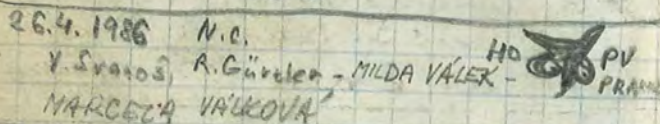 26.4.1986 N.C.
V. Svatoš, R. Gürtler - MILDA VÁLEK - HO PV
MARCELA VÁLKOVÁ